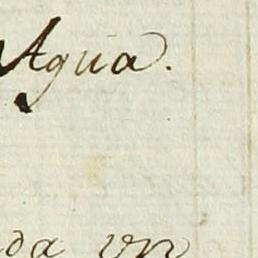 Agua.
da un